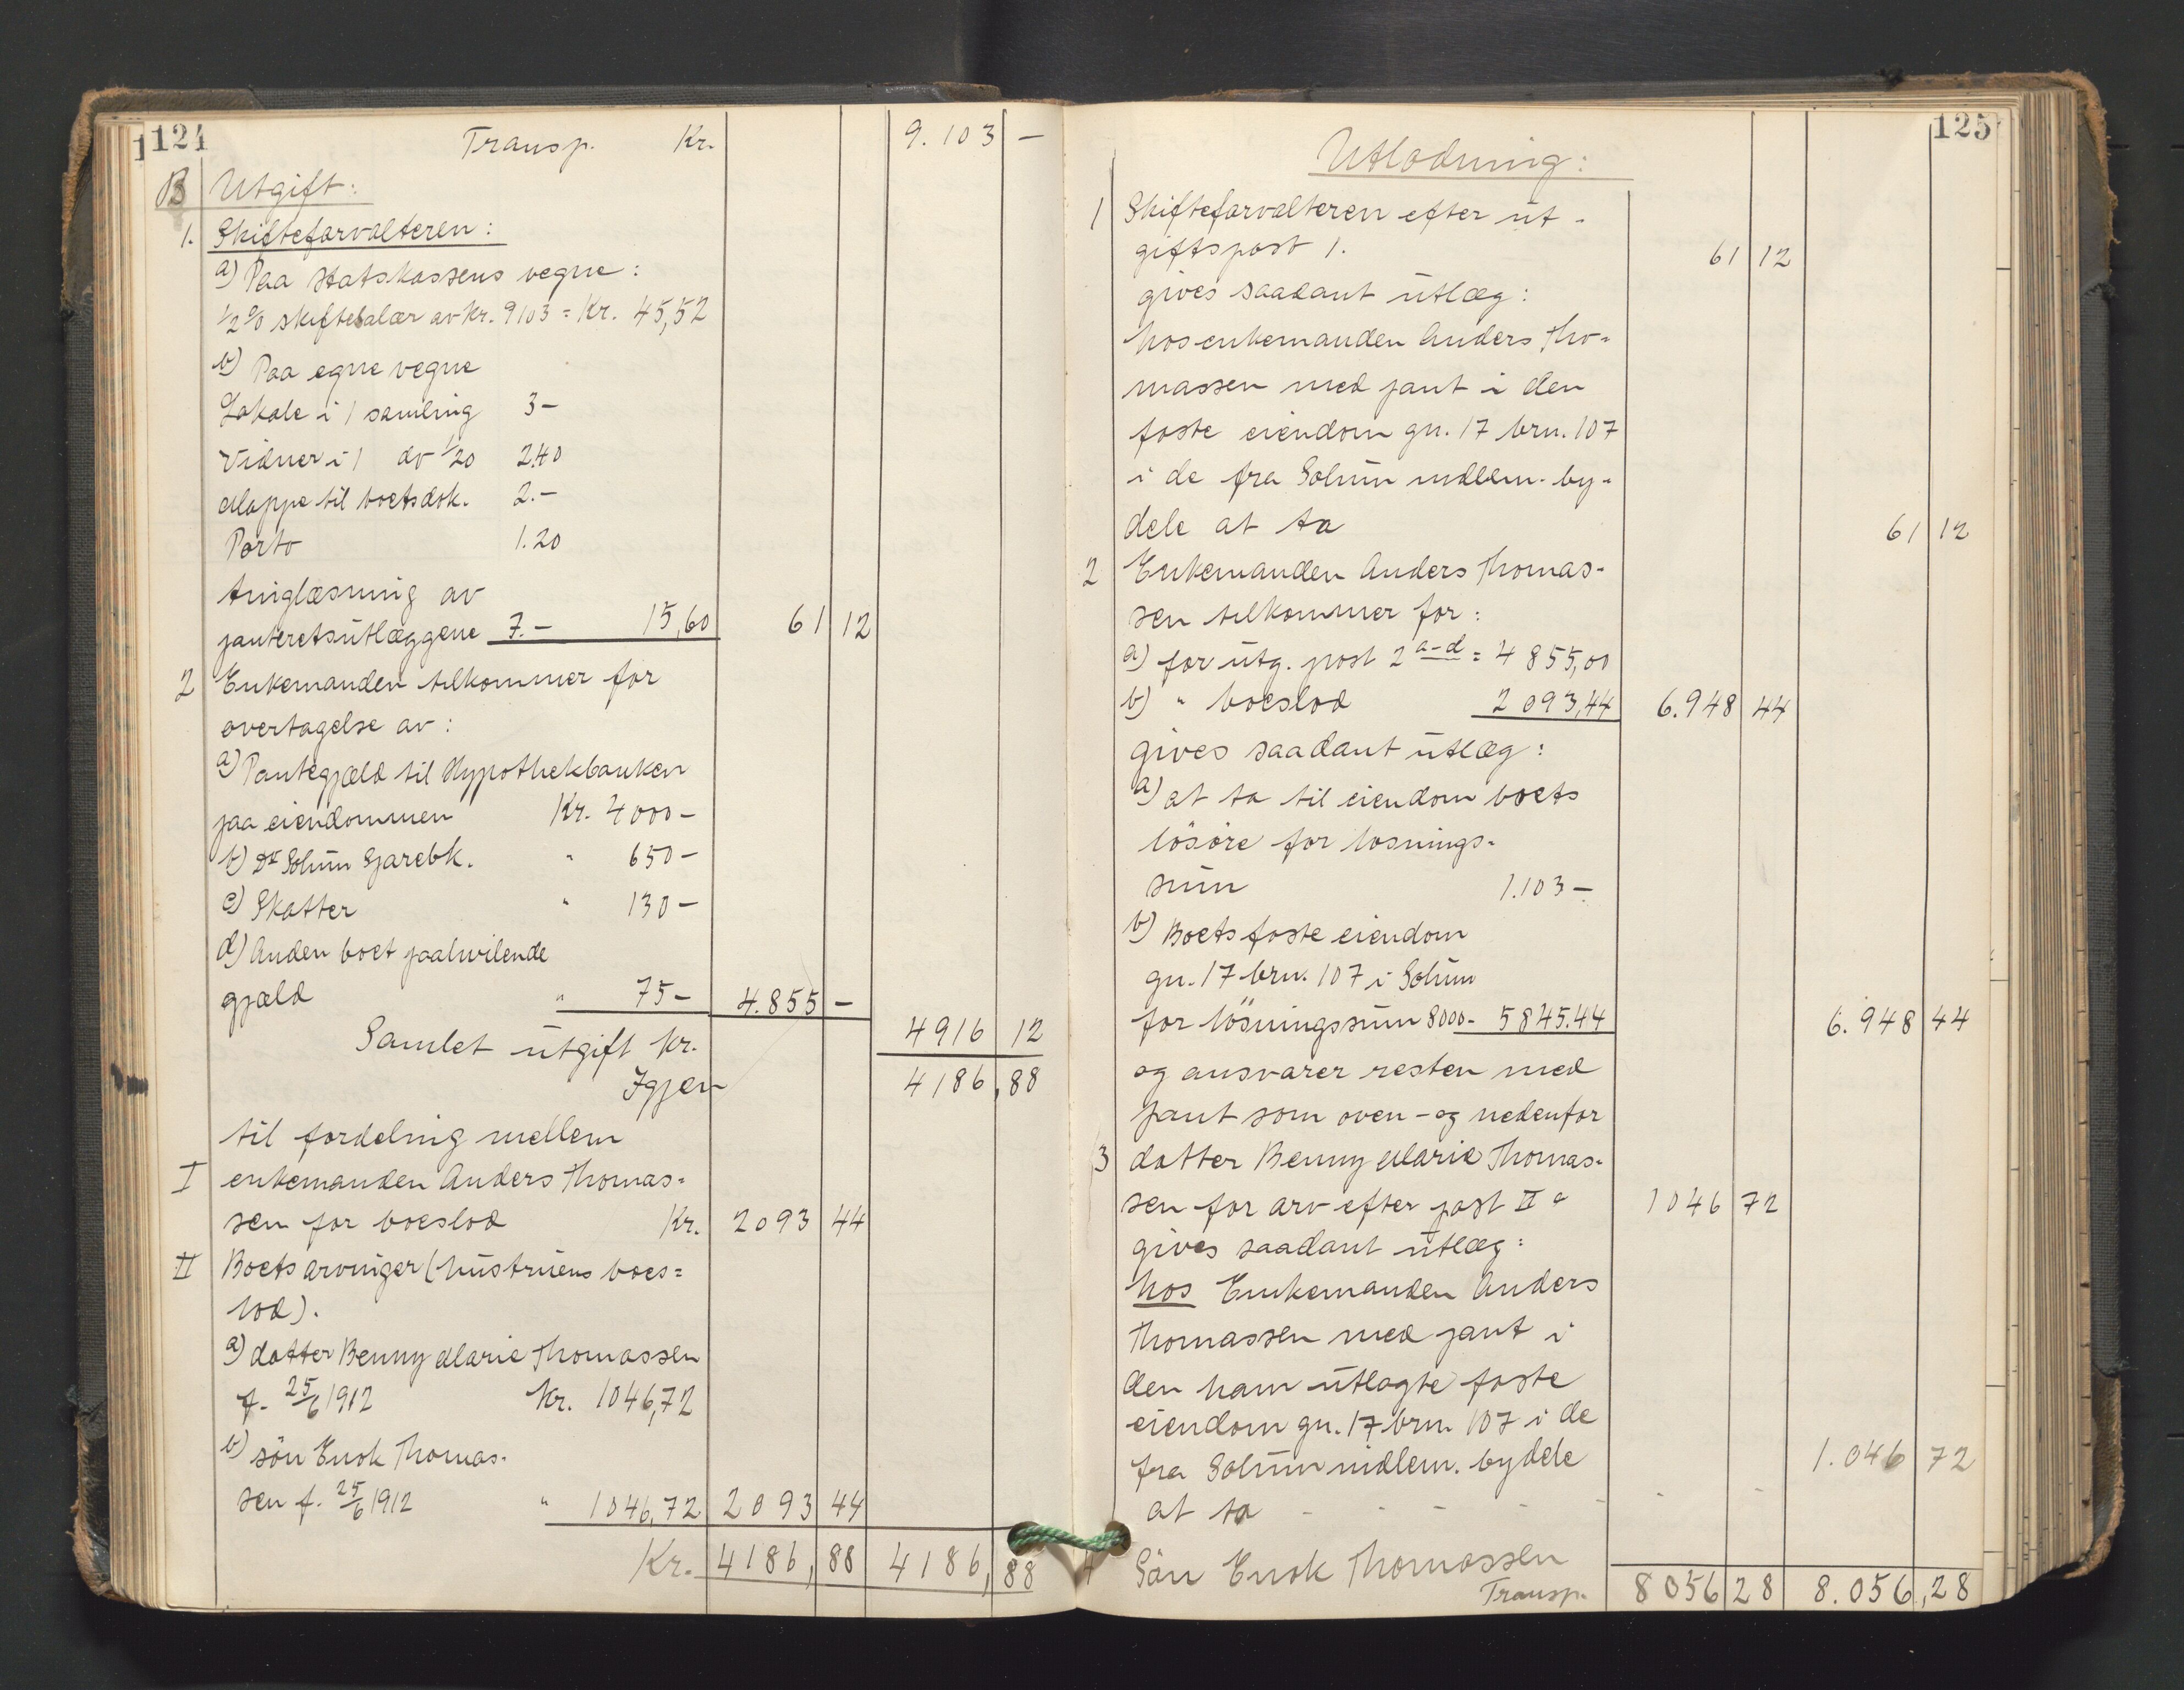 124
Transp. Kr. 9.103 —
B Utgift:
1. Skifteforvalteren:
a) Paa statskassens vegne:
1/2 % skiftesalær av kr. 9103 = Kr. 45,52
b) Paa egne vegne
Lokale i 1 samling 3 —
Vidner i 1 do 1/20 2.40
Mappe til boets dok. 2.—
Porto 1.20
tinglæsning av
panteretsutlæggene 7.— 15,60 61 12
2 Enkemanden tilkommer for
overtagelse av:
a) Pantegjæld til Hypothekbanken
paa eiendommen Kr. 4000 —
b) Do Solum Sparebk. " 650 —
c) Skatter " 130 —
d) Anden boet paahvilende
gjæld " 75 — 4.855 —
Samlet utgift kr. 4916 12
Igjen 4186,88
til fordeling mellem
I enkemanden Anders Thomas=
sen for boeslod Kr. 2093 44
II Boets arvinger (hustruens boes=
lod).
a) datter Benny Marie Thomassen
f. 25/6 1912 Kr. 1046,72
b) sön Enok Thomas-
sen f. 25/6 1912 " 1046,72 2093 44
Kr. 4186,88 4186,88
125
Utlodning:
1 Skifteforvalteren efter ut-
giftspost 1. 61 12
gives saadant utlæg:
hos enkemanden Anders Tho=
massen med pant i den
faste eiendom gn. 17 brn. 107
i de fra Solum indlem. by-
dele at ta 61 12
2 Enkemanden Anders Thomas-
sen tilkommer for:
a) for utg. post 2 a-d = 4855,00
b) " boeslod 2093,44 6.948 44
gives saadant utlæg:
a) at ta til eiendom boets
lösöre for losnings-
sum 1.103 —
b) Boets faste eiendom
gn. 17 brn. 107 i Solum
for lösningssum 8000- 5845.44 6.948 44
og ansvarer resten med
pant som oven- og nedenfor
3 datter Benny Marie Thomas-
sen for arv efter post II a 1046 72
gives saadant utlæg:
hos Enkemanden Anders
Thomassen med pant i
den ham utlagte faste
eiendom gn. 17 brn. 107 i de
fra Solum indlem. bydele 1.046 72
at ta - - - - - -
4 Sön Enok Thomassen
Transp. 8056 28 8.056,28